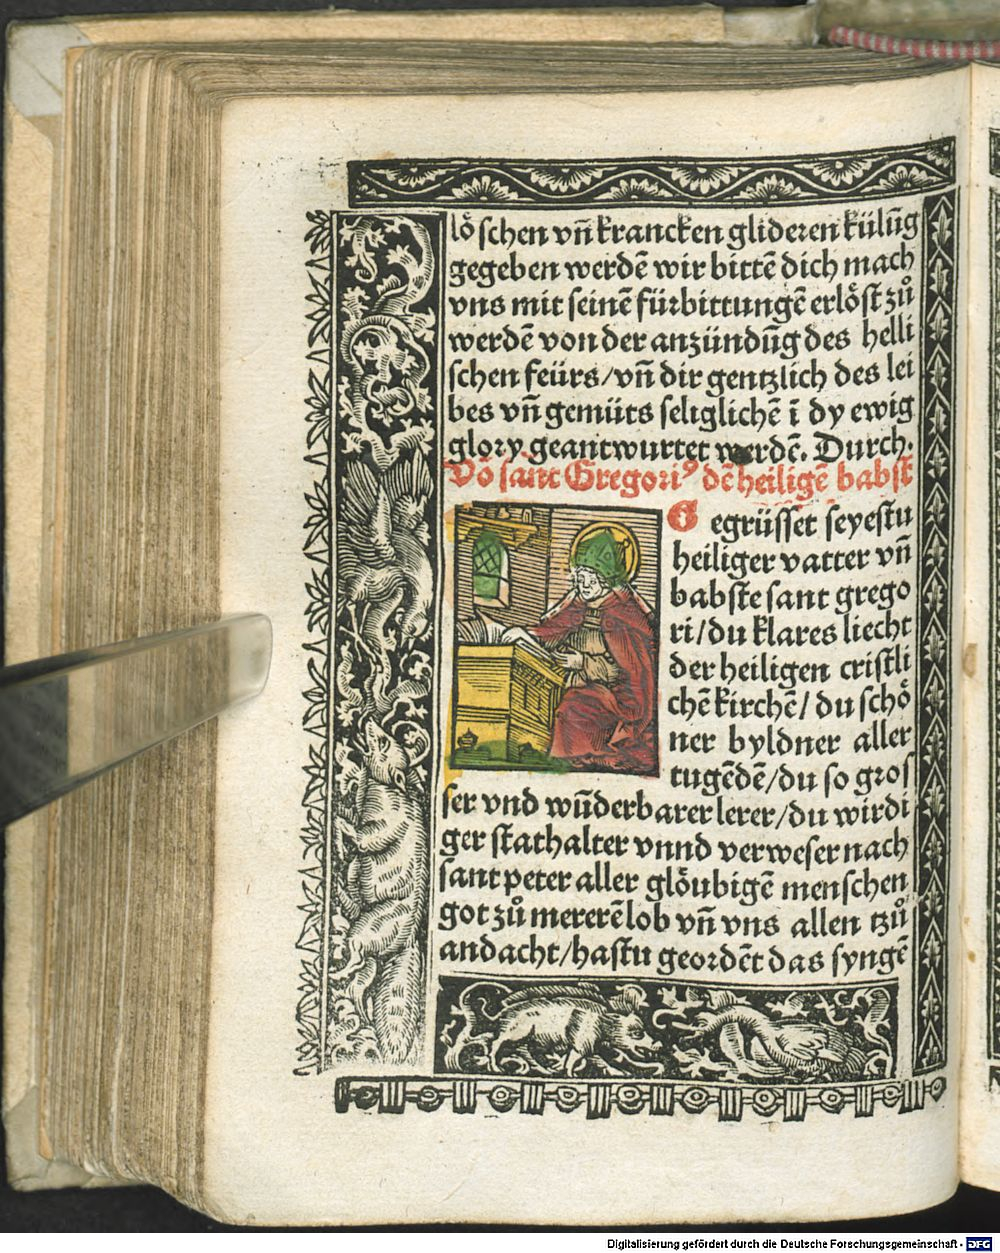 lo̊ schen vn̄ krancken glideren külūg
gegeben werdē wir bittē dich mach
vns mit seinē fürbittungē erlo̊st zů
werdē von der anzündūg des helli
schen feürs/vn̄ dir gentzlich des lei
bes vn̄ gemüts seliglichē ī dy ewig
glory geantwurtet werdē. Durch.
Vō sant Gregoriꝰ dē heiligē babst
Gegrüsset seyestu
heiliger vatter vn̄
babste sant grego
ri/du klares liecht
der heiligen cristli
chē kirchē/du scho̊
ner byldner aller
tugēdē/du so gros
ser vnd wūderbarer lerer/du wirdi
ger stathalter vnnd verweser nach
sant peter aller glo̊ubigē menschen
got zů mererē lob vn̄ vns allen tzů
andacht/hastu geordēt das syngē
Digitalisierung gefördert durch die Deutsche Forschungsgemeinschaft - DFG